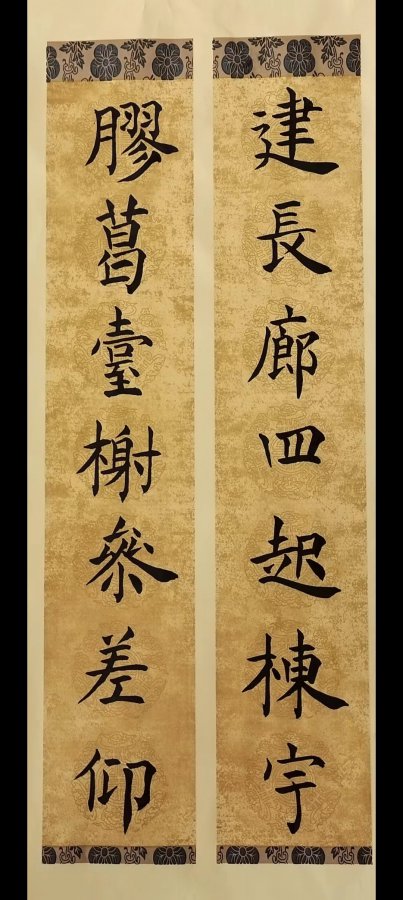 建長廊四起棟宇
膠葛臺榭叅差仰